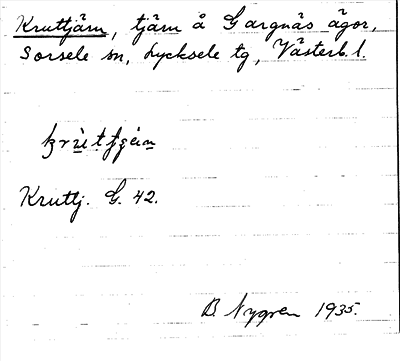 Kruttjärn, tjärn å Gargnäs ägor,
Sorsele sn, Lycksele tg, Västerb. l.
Kruttj. G. 42.
B. Nygren 1935.